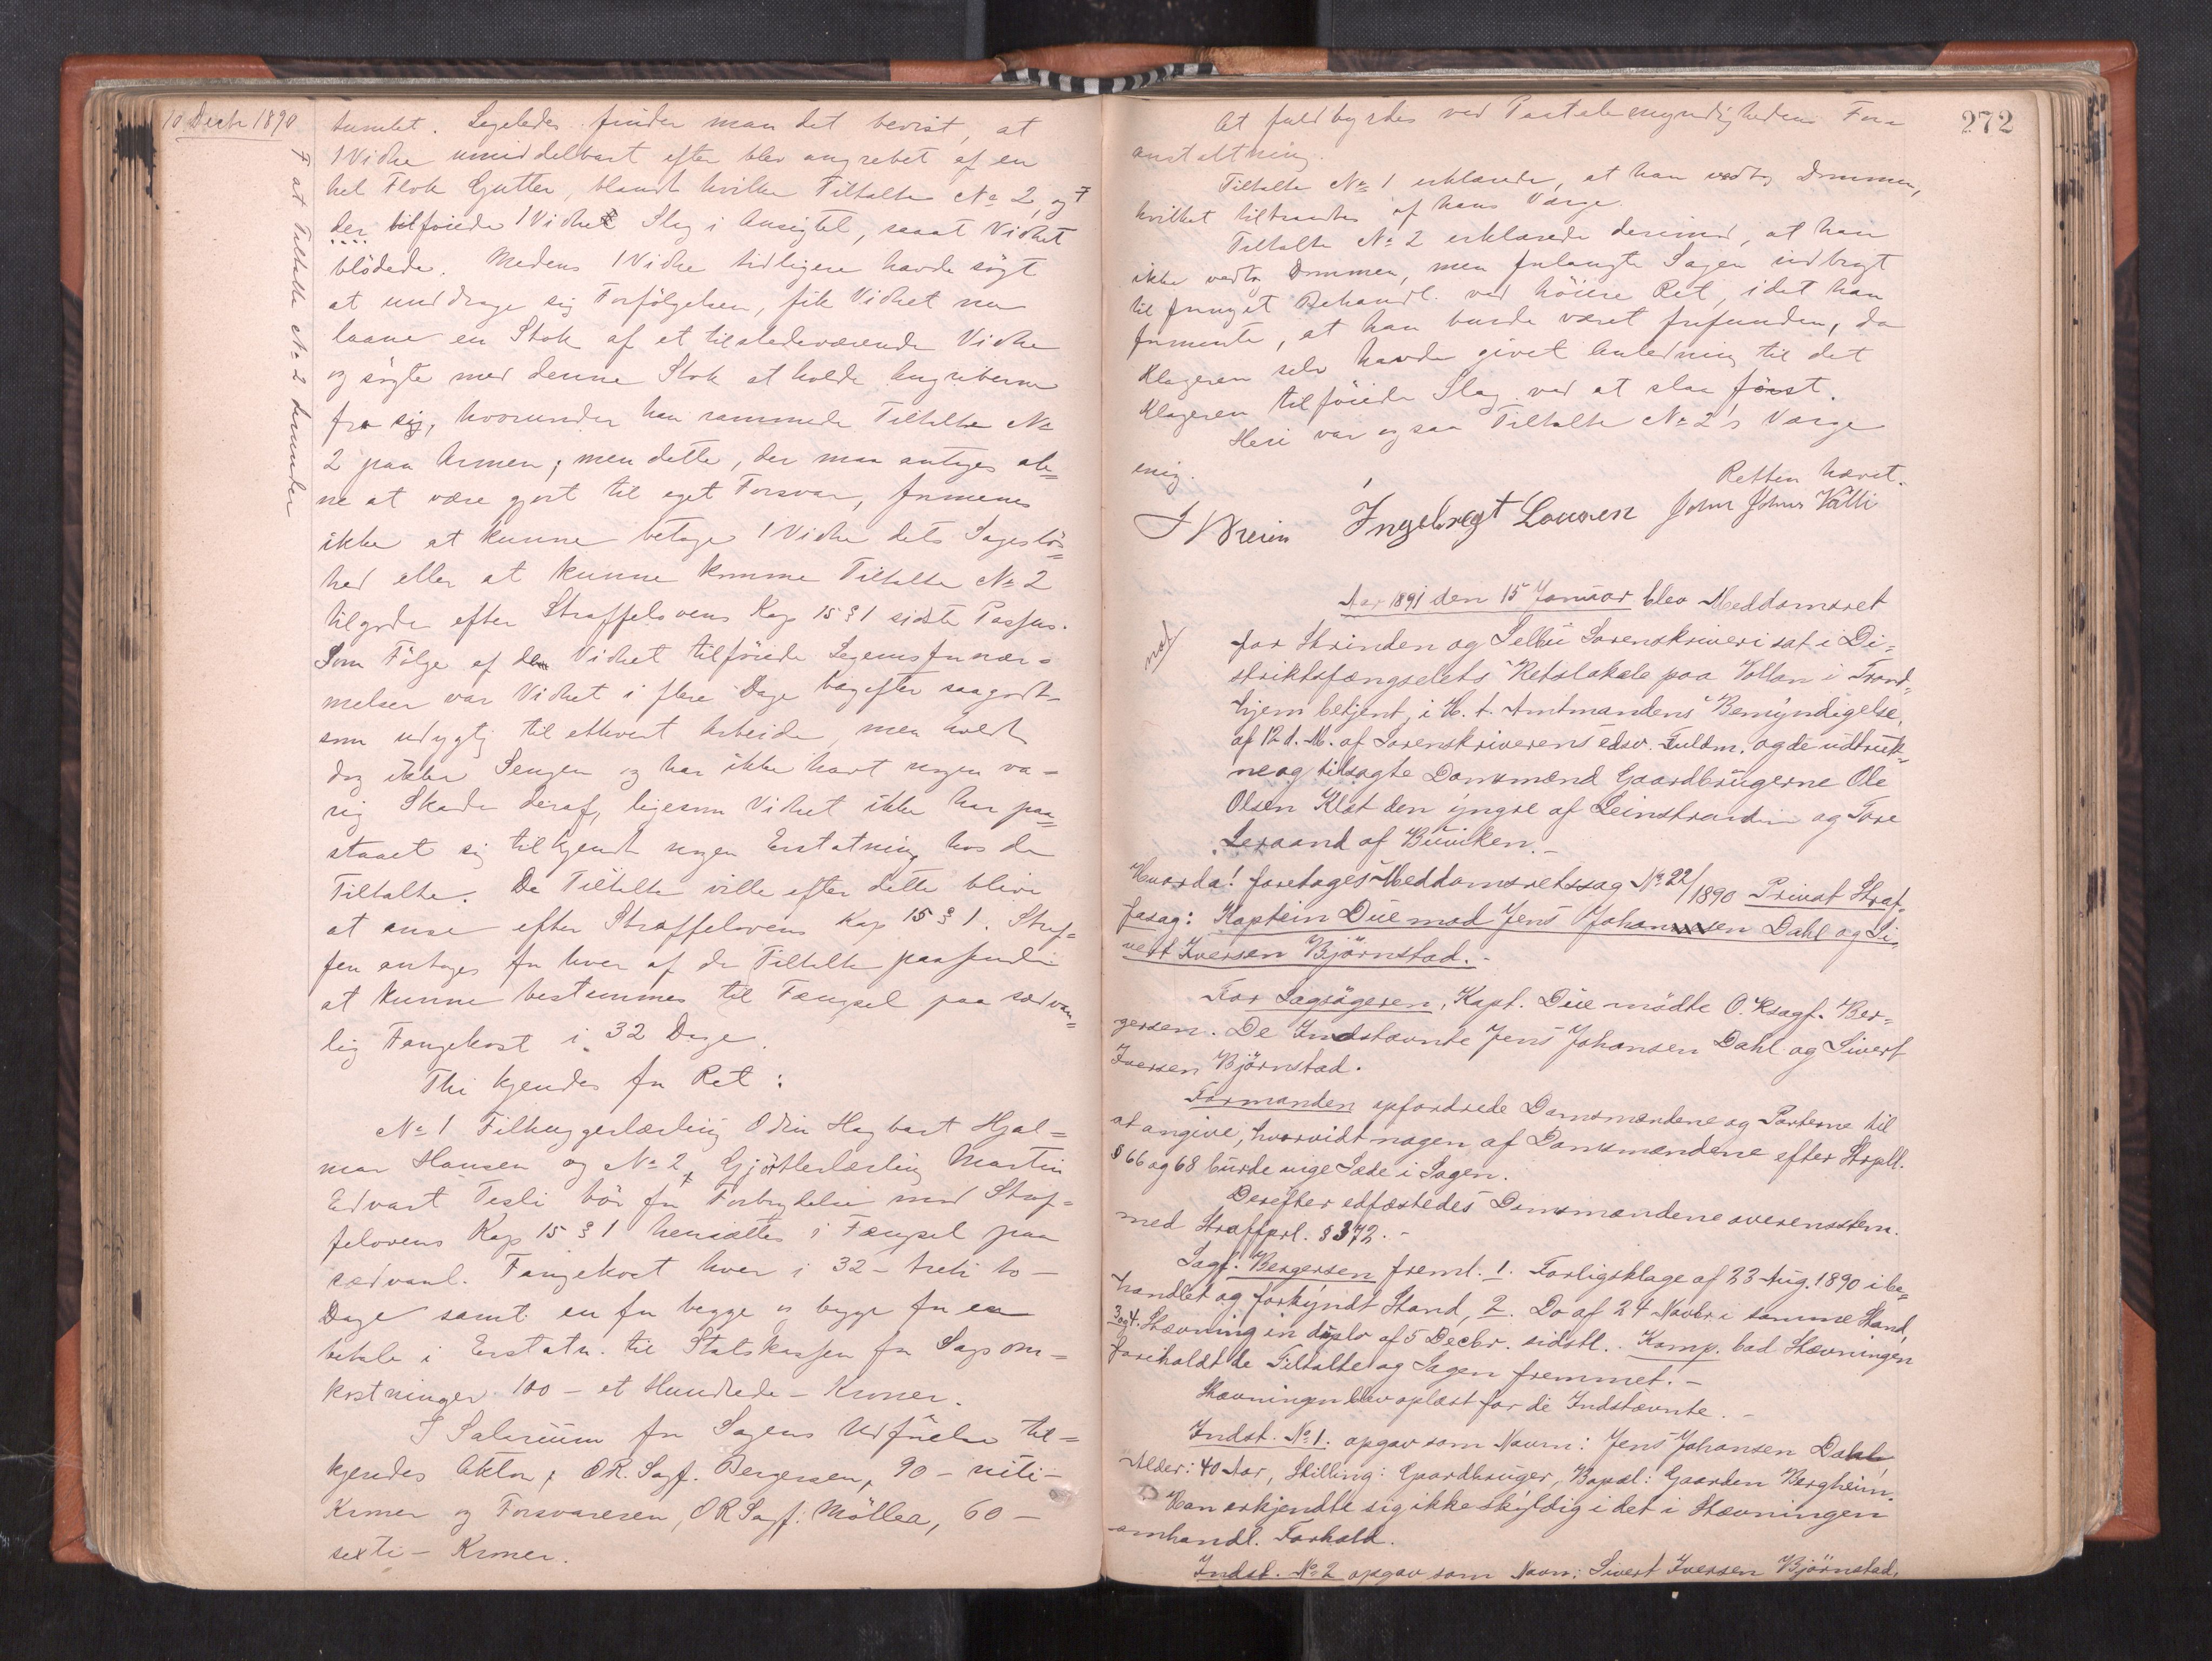 10 Decbr 1890
tumlet. Ligeledes finder man det bevist, at
1 Vidne umiddelbart efter blev angrebet af en
hel Flok Gutter, blandt hvilke Tiltalte No 2, og F
der tilføiede 1 Vidnet Slag i Ansigtet, saaat Vidnet
F at Tiltalte No 2 herunder
blødede. Medens 1 Vidne tidligere havde søgt
at unddrage sig Forfølgelsen, fik Vidnet nu
laane en Stok af et tilstedeværende Vidne
og søgte med denne Stok at holde Angriberne
fra sig, hvorunder han rammede Tiltalte No
2 paa Armen; men dette, der maa antages ale=
ne at være gjort til eget Forsvar, formenes
ikke at kunne betage 1 Vidne dets Sagesløs=
hed eller at kunne komme Tiltalte No 2
tilgode efter Straffelovens Kap 15 § 1 sidste Passus.
Som Følge af den Vidnet tilføiede Legemsfornær=
melser var Vidnet i flere Dage bagefter saagodt
som udygtig til ethvert Arbeide, men holdt
dog ikke Sengen og har ikke havt nogen va=
rig Skade deraf, ligesom Vidnet ikke har paa=
staaet sig tilkjendt nogen Erstatning hos de
Tiltalte. De Tiltalte ville efter dette blive
at anse efter Straffelovens Kap 15 § 1. Straf=
fen antages for hver af de Tiltalte passende
at kunne bestemmes til Fængsel paa sædvan=
lig Fangekost i 32 Dage.
Thi kjendes for Ret:
No 1 Filhuggerlærling Odin Hagbart Hjal=
mar Hansen og No 2, Gjørtlerlærling Martin
Edvart Tesli bør for Forbrydelse mod Straf=
felovens Kap 15 § 1 hensættes i Fængsel paa
sædvanl. Fangekost hver i 32 - treti to -
Dage samt en for begge og begge for en
betale i Erstatn. til Statskassen for Sagsom=
kostninger 100 - et Hundrede - Kroner.
I Salarium for Sagens Udførelse til=
kjendes Aktor, O.R. Sagf. Bergersen, 90 - niti -
Kroner og Forsvareren, OR Sagf: Möller, 60 -
sexti - Kroner.
272
At fuldbyrdes ved Paatalemyndighedens For=
anstaltning.
Tiltalte No 1 erklærede, at han vedtog Dommen,
hvilket tiltraadtes af hans Værge.
Tiltalte No 2 erklærede derimod, at han
ikke vedtog Dommen, men forlangte Sagen indbragt
til fornyet Behandl. ved høiere Ret, idet han
formente, at han burde været frifunden, da
Klageren selv havde givet Anledning til det
Klageren tilføiede Slag ved at slaa først.
Heri var ogsaa Tiltalte No 2's Værge
enig.
Retten hævet.
Ingebregt Lousen John Johns
Aar 1891 den 15 Januar blev Meddomsret
for Strinden og Selbu Sorenskriveri sat i Di=
striktsfængselets Retslokale paa Vollan i Trond=
hjem betjent, i H. t. Amtmandens Bemyndigelse,
af 12 d. M. af Sorenskriverens edsv. Fuldm. og de udtruk=
ne og tilsagte Domsmænd Gaardbrugerne Ole
Olsen Klæt den yngre af Leinstranden og Tore
Leraand af Buviken.-
Hvorda! foretoges Meddomsretssag No 22/1890 Privat Straf=
fesag: Kaptein Due mod Jens Johansen Dahl og Si=
vert Iversen Björnstad.-
For Sagsøgeren, Kapt. Due mødte O. Rsagf. Ber=
gersen. De Indstævnte Jens Johansen Dahl og Sivert
Iversen Björnstad.
Formanden opfordrede Domsmændene og Parterne til
at angive, hvorvidt nogen af Domsmændene efter Strpll.
§ 66 og 68 burde vige Sæde i Sagen.
Derefter edfæstedes Domsmændene overensstem.
med Straffprl. § 372.-
Sagf: Bergersen freml. 1. Forligsklage af 23 Aug. 1890 i be=
handlet og forkyndt Stand, 2. Do af 24 Novbr. i samme Stand,
3 og 4. Stævning in duplo af 5 Decbr. sidstl. Komp. bad Stævningen
foreholdt de Tiltalte og Sagen fremmet.-
Stævningen blev oplæst for de Indstævnte.-
Indst. No 1. opgav som Navn: Jens Johansen Dahl,
Alder: 40 Aar, Stilling: Gaardbruger, Bopæl: Gaarden Bergheim.
Han erkjendte sig ikke skyldig i det i Stævningen
omhandl. Forhold.
Indst. No 2 opgav som Navn: Sivert Iversen Björnstad,